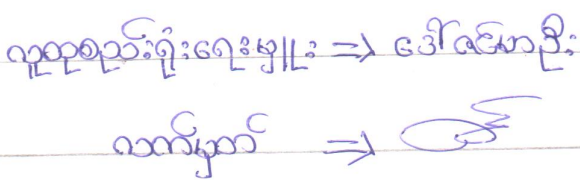 လူထုစည်းရုံးရေးမှူး => ဒေါ်ဇင်မာဦး
လက်မှတ် =>